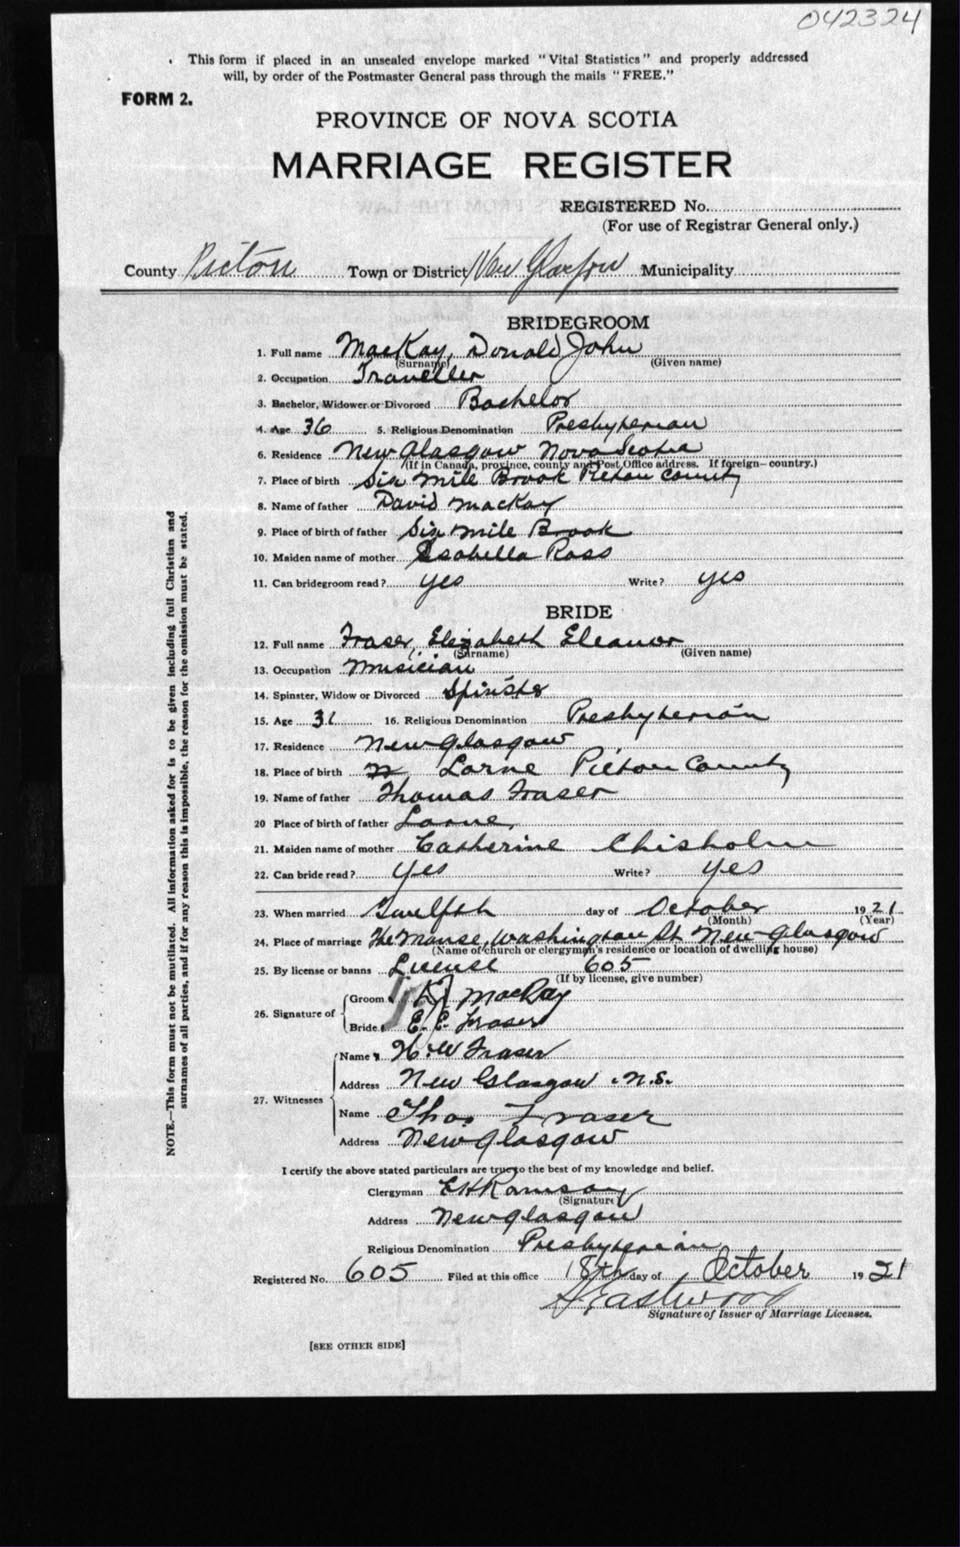 042324
This form if placed in an unsealed envelope marked "Vital Statistics" and properly addressed
will, by order of the Postmaster General pass through the mails "FREE."
FORM 2.
PROVINCE OF NOVA SCOTIA
MARRIAGE REGISTER
REGISTERED No.
(For use of Registrar General only.)
County Pictou Town or District New Glasgow Municipality
BRIDEGROOM
1. Full name MacKay, Donald John
(Surname) (Given name)
2. Occupation Traveller
3. Bachelor, Widower or Divorced Bachelor
4. Age 36 5. Religious Denomination Presbyterian
6. Residence New Glasgow Nova Scotia
(If in Canada, province, county and Post Office address. If foreign—country.)
7. Place of birth Six Mile Brook Pictou County
8. Name of father David MacKay
9. Place of birth of father Six Mile Brook
10. Maiden name of mother Isabella Ross
11. Can bridegroom read? yes Write? yes
BRIDE
12. Full name Fraser, Elizabeth Eleanor
(Surname) (Given name)
13. Occupation Musician
14. Spinster, Widow or Divorced Spinster
15. Age 31 16. Religious Denomination Presbyterian
17. Residence New Glasgow
18. Place of birth Lorne Pictou County
19. Name of father Thomas Fraser
20 Place of birth of father Lorne,
21. Maiden name of mother Catherine Chisholm
22. Can bride read? Yes Write? yes
23. When married Twelfth day of October 1921
(Month) (Year)
24. Place of marriage The Manse, Washington St New Glasgow
(Name of church or clergyman's residence or location of dwelling house)
25. By license or banns License 605
(If by license, give number)
26. Signature of
Groom MacKay
Bride E. E. Fraser
27. Witnesses
Name H. W Fraser
Address New Glasgow N.S.
Name Thos Fraser
Address New Glasgow
I certify the above stated particulars are true to the best of my knowledge and belief.
Clergyman Ramsay
(Signature)
Address New Glasgow
Religious Denomination Presbyterian
Registered No. 605 Filed at this office 18th day of October 1921
Eastwood
Signature of Issuer of Marriage Licenses.
[SEE OTHER SIDE]
NOTE.—This form must not be mutilated. All information asked for is to be given including full Christian and
surnames of all parties, and if for any reason this is impossible, the reason for the omission must be stated.